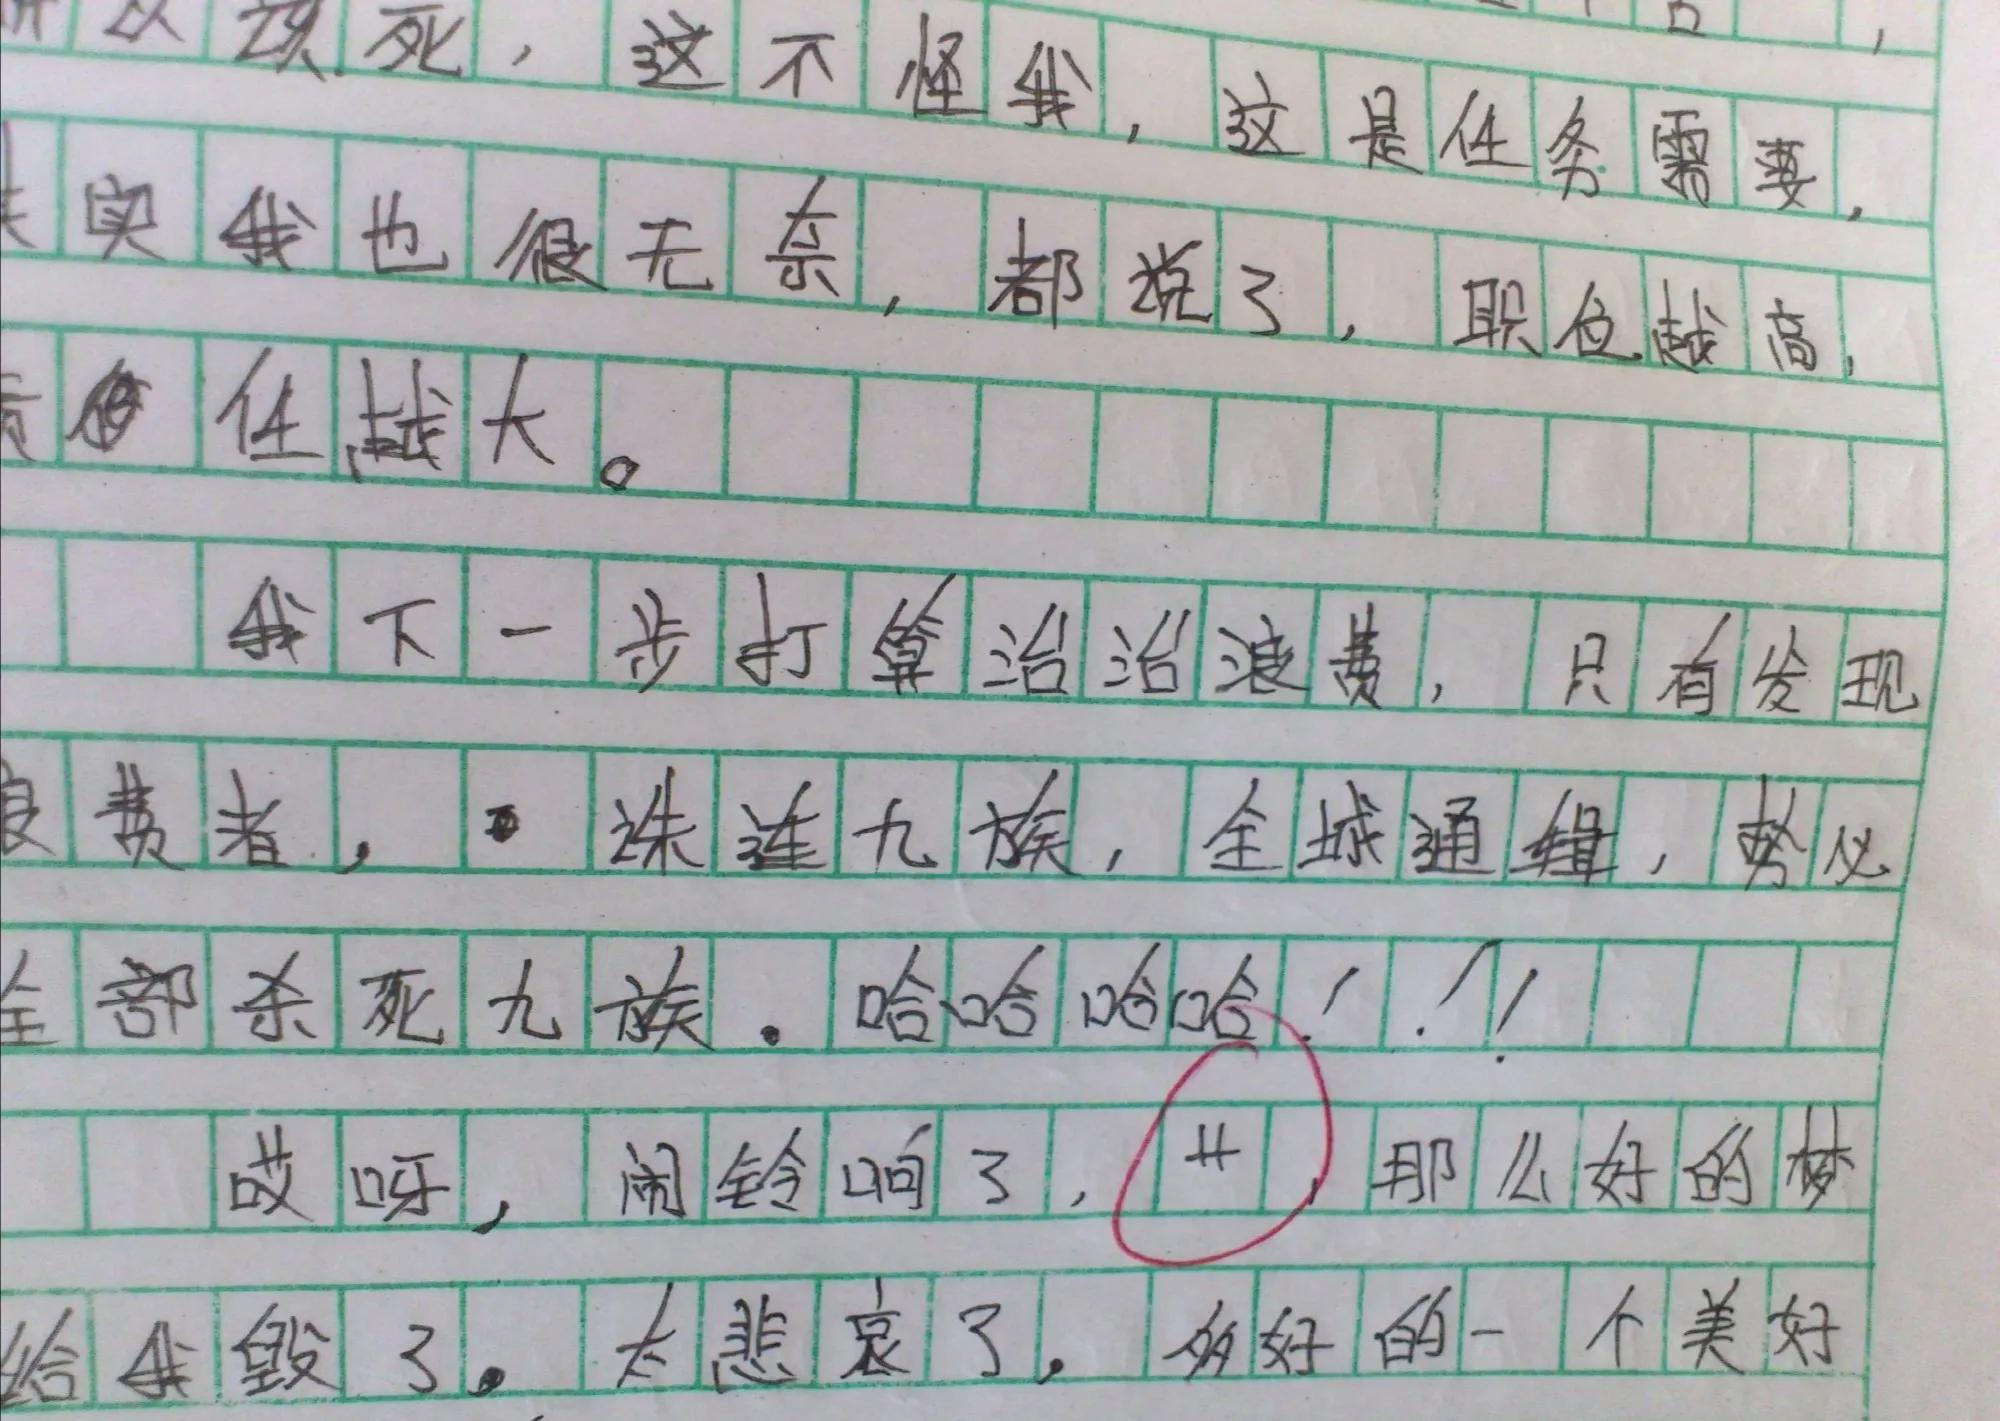 该死，这不怪我，这是任务需要，
实我也很无奈，都说了，职位越高，
任越大。
我下一步打算治治浪费，只有发现
费者，诛连九族，全球通缉，势必
全部杀死九族．哈哈哈哈！！！
哎呀，闹铃响了，艹，那么好的梦
给我毁了。太悲哀了．多好的一个美好